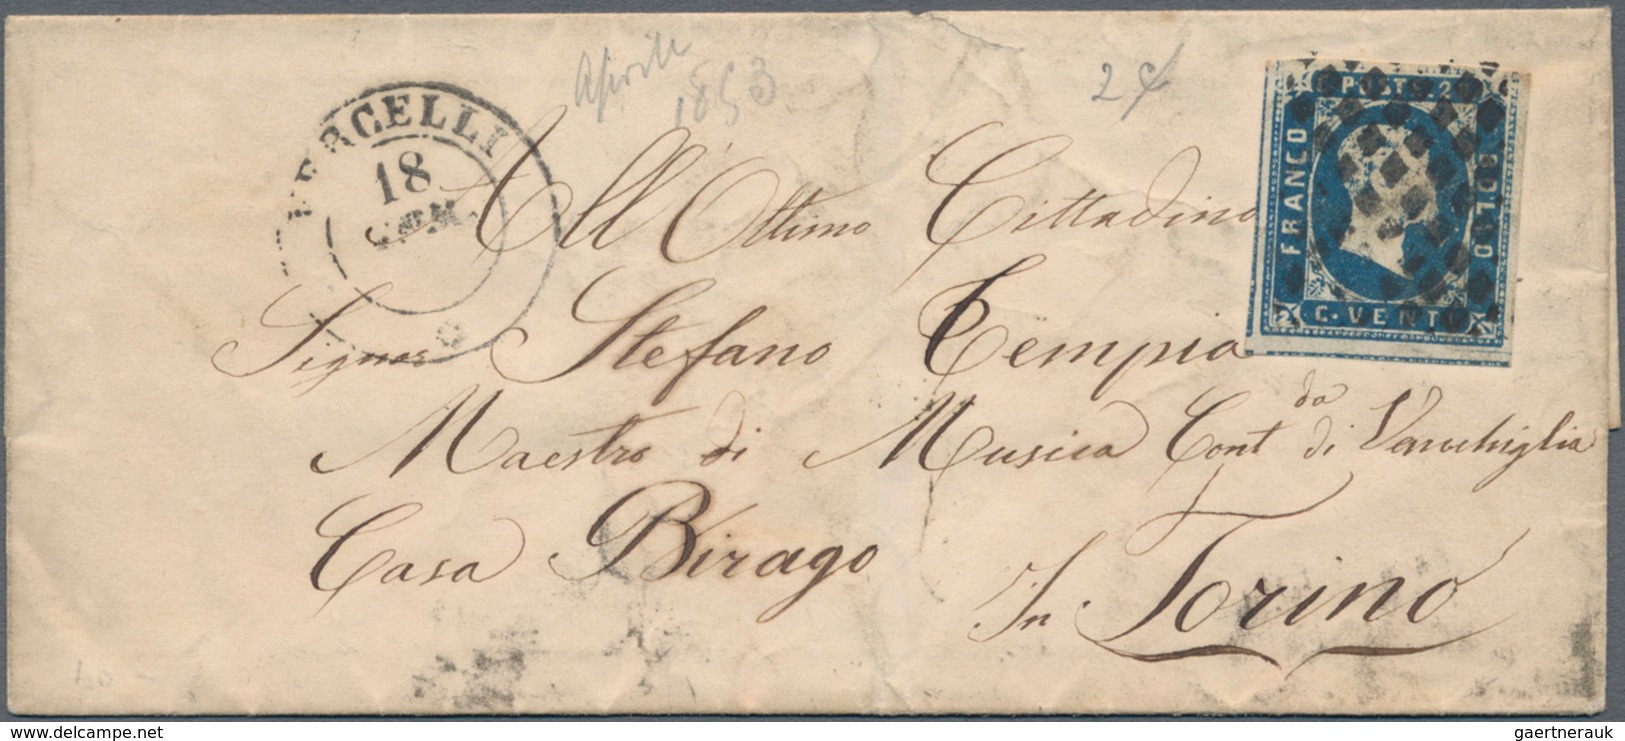 Aprile
1853
2
VERCELLI
18
POSTE 2
FRANCO
BOLLO
C. VENTI
All' Ottimo Cittadino
Signor Stefano Tempia
Maestro di Musica Cont da di Vanchiglia
Casa Birago
In Torino
gaertnerauk